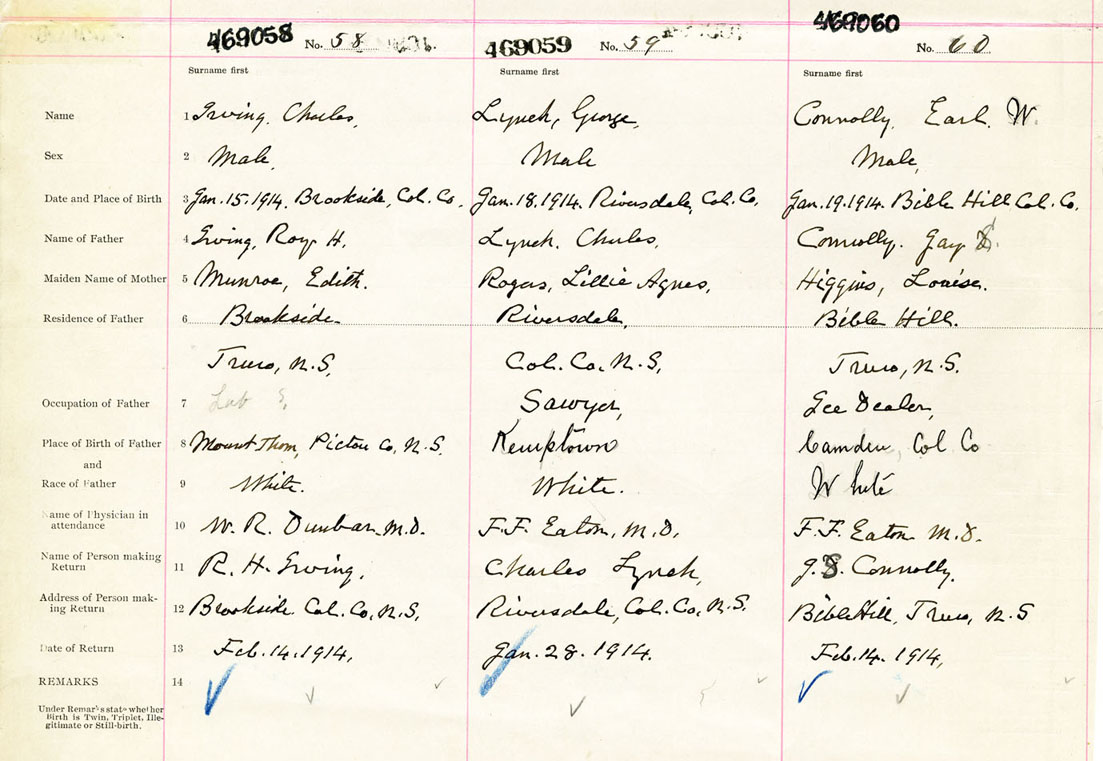 469058 No. 58 469059 No. 59 469060 No. 60
Surname first Surname first Surname first
Name 1 Irving, Charles, Lynch, George, Connolly, Earl. W.
Sex 2 Male, Male Male,
Date and Place of Birth 3 Jan. 15. 1914. Brookside, Col. Co. Jan. 18. 1914. Riversdale, Col. Co. Jan. 19. 1914. Bible Hill Col. Co.
Name of Father 4 Irving, Roy H. Lynch, Charles, Connolly. Gay
Maiden Name of Mother 5 Munroe, Edith. Rogers, Lillie Agnes, Higgins, Louise.
Residence of Father 6 Brookside Riversdale, Bible Hill.
Truro, N.S, Col. Co. N.S, Truro, N.S.
Occupation of Father 7 Lab Sawyer, Ice Dealer,
Place of Birth of Father 8 Mount Thom, Pictou Co, N.S. Kemptown Camden, Col Co
and
Race of Father 9 White. White. White
Name of Physician in
attendance 10 W. R. Dunbar M.D. F.F. Eaton, M.D. F.F. Eaton M.D.
Name of Person making
Return 11 R. H. Irving, Charles Lynch, G. S. Connolly,
Address of Person mak-
ing Return 12 Brookside Col. Co, N.S, Riversdale, Col. Co, N.S. Bible Hill, Truro, N.S
Date of Return 13 Feb. 14. 1914, Jan. 28. 1914. Feb. 14. 1914,
REMARKS 14
Under Remarks state whether
Birth is Twin, Triplet, Ille-
gitimate or Still-birth.